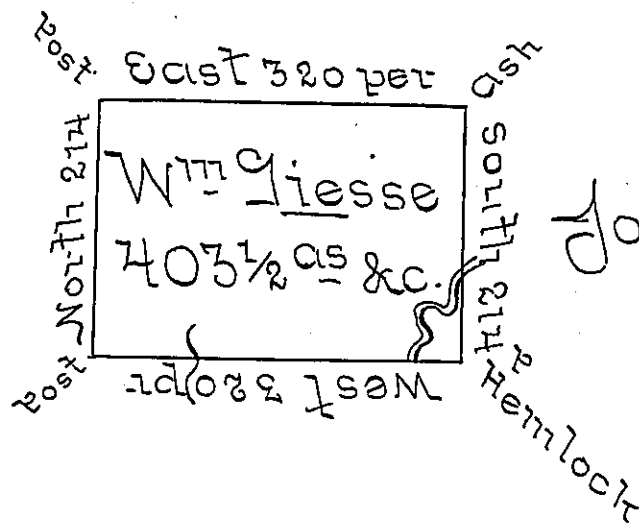 Post
East 320 per
Ash
North 214
Wm Giesse
403 1/2 as &c.
South 214 p
Post
West 320 pr
Hemlock